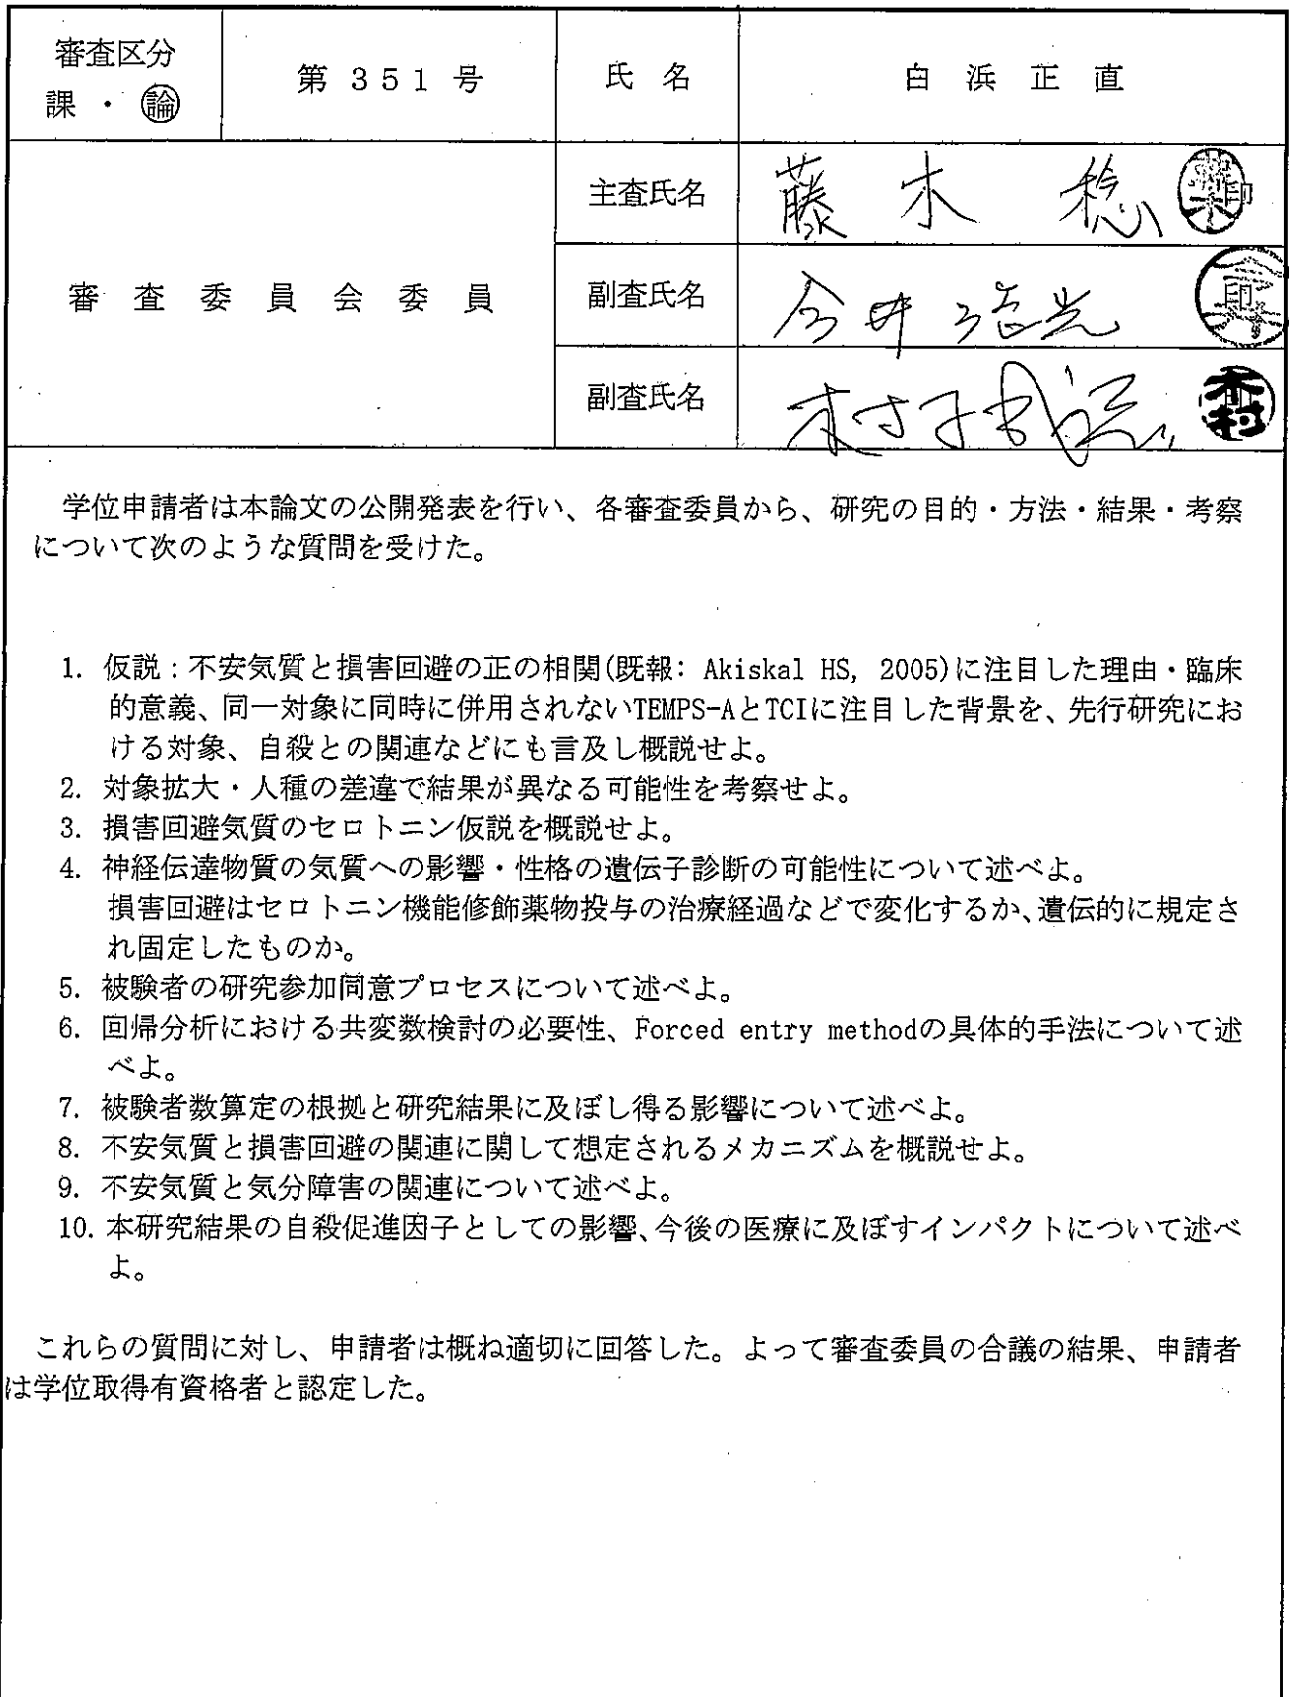 審査区分
課 ・ 論
第 351 号
氏 名
白 浜 正 直
審 査 委 員 会 委 員
主査氏名
藤 木 稔
印
副査氏名
今井 浩光
印
副査氏名
木村
学位申請者は本論文の公開発表を行い、各審査委員から、研究の目的・方法・結果・考察
について次のような質問を受けた。
1. 仮説：不安気質と損害回避の正の相関(既報: Akiskal HS, 2005)に注目した理由・臨床
的意義、同一対象に同時に併用されないTEMPS-AとTCIに注目した背景を、先行研究にお
ける対象、自殺との関連などにも言及し概説せよ。
2. 対象拡大・人種の差違で結果が異なる可能性を考察せよ。
3. 損害回避気質のセロトニン仮説を概説せよ。
4. 神経伝達物質の気質への影響・性格の遺伝子診断の可能性について述べよ。
損害回避はセロトニン機能修飾薬物投与の治療経過などで変化するか、遺伝的に規定さ
れ固定したものか。
5. 被験者の研究参加同意プロセスについて述べよ。
6. 回帰分析における共変数検討の必要性、Forced entry methodの具体的手法について述
べよ。
7. 被験者数算定の根拠と研究結果に及ぼし得る影響について述べよ。
8. 不安気質と損害回避の関連に関して想定されるメカニズムを概説せよ。
9. 不安気質と気分障害の関連について述べよ。
10. 本研究結果の自殺促進因子としての影響、今後の医療に及ぼすインパクトについて述べ
よ。
これらの質問に対し、申請者は概ね適切に回答した。よって審査委員の合議の結果、申請者
は学位取得有資格者と認定した。